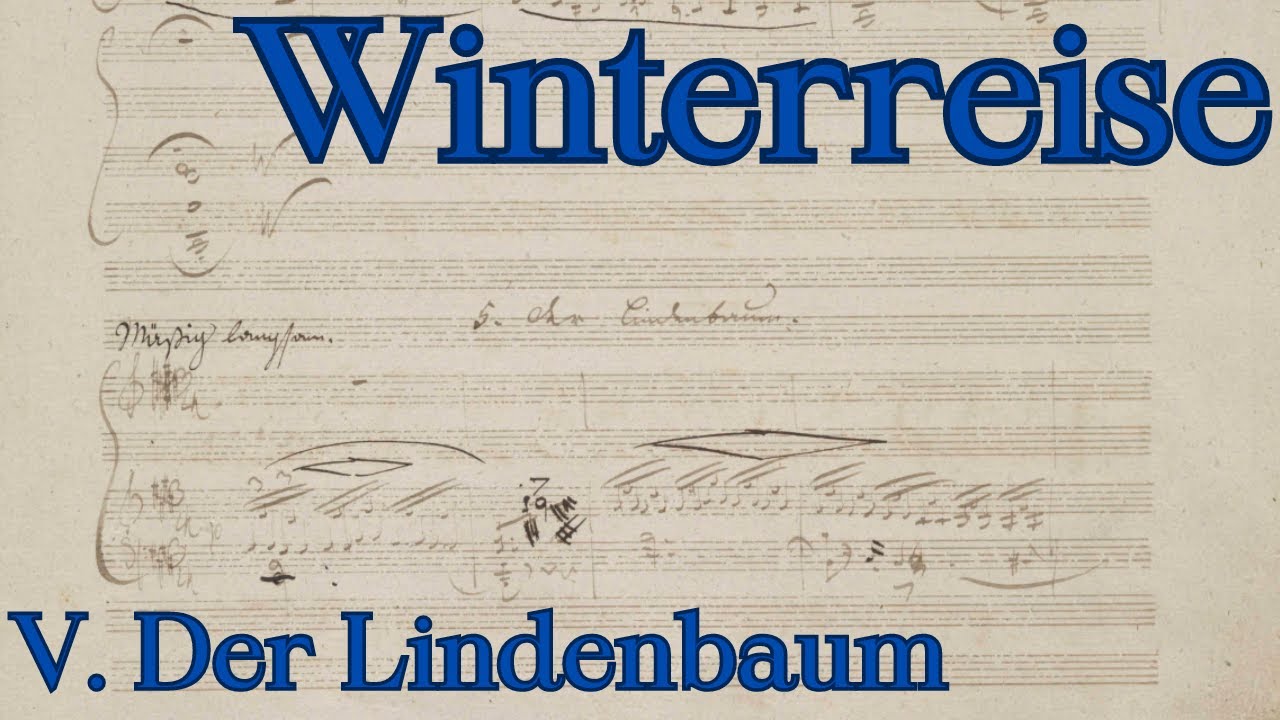 Winterreise
5. Der Lindenbaum.
Mäßig langsam.
V. Der Lindenbaum